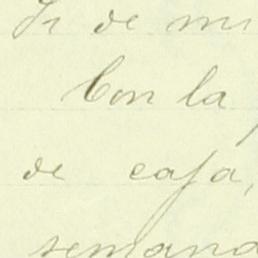 de mi
Con la
de casa,
semana